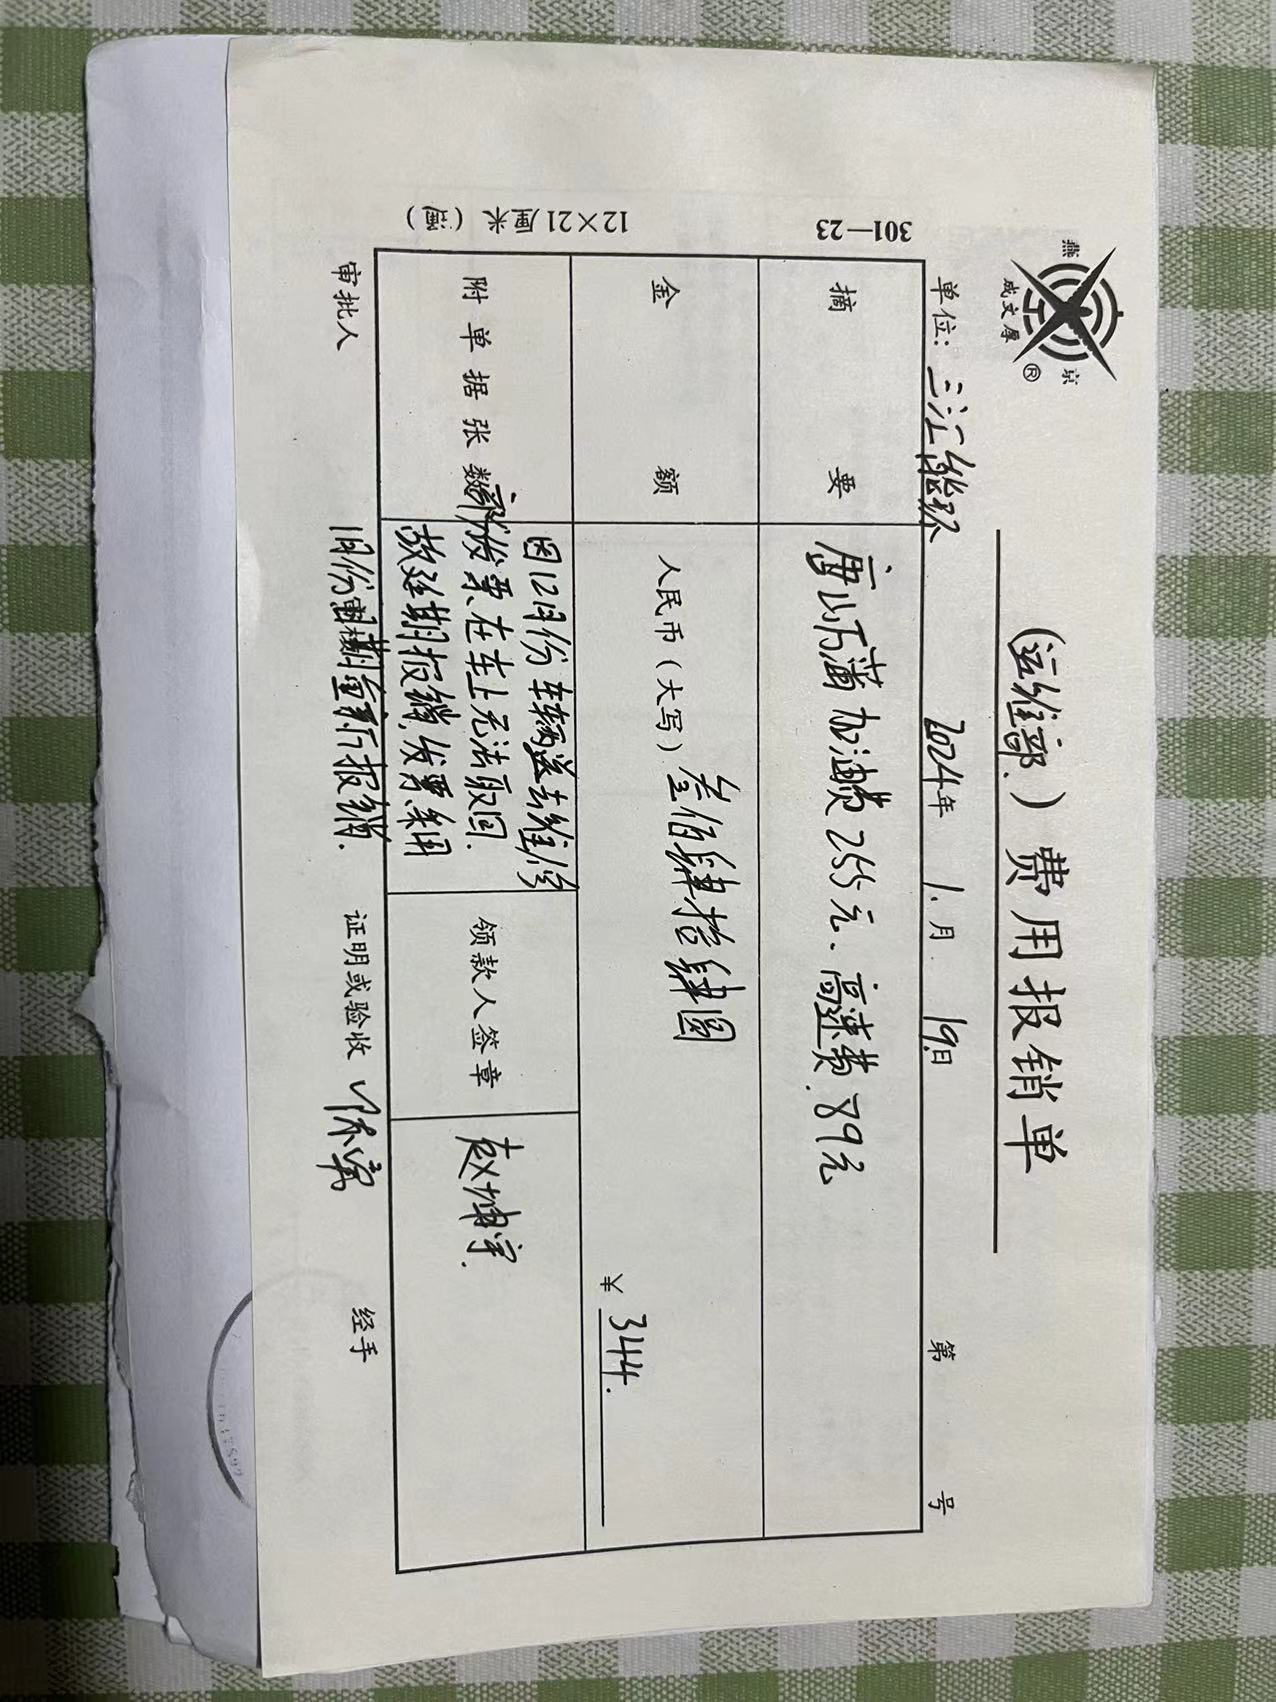 燕京
成文厚
®
(运维部.)费用报销单
单位:三汇能环 2024年 1.月 19日 第 号
摘要 唐山丐莆加油费255元.高速费.89元
金额 人民币(大写)叁佰肆拾肆圆
¥ 344.
附单据张数 因12月份车辆送去维修
部份发票在车上无法取回.
故延期报销,发票采用
1月份重新报销.
领款人签章 赵埔宇.
审批人 证明或验收 经手
301—23
12×21厘米(通)